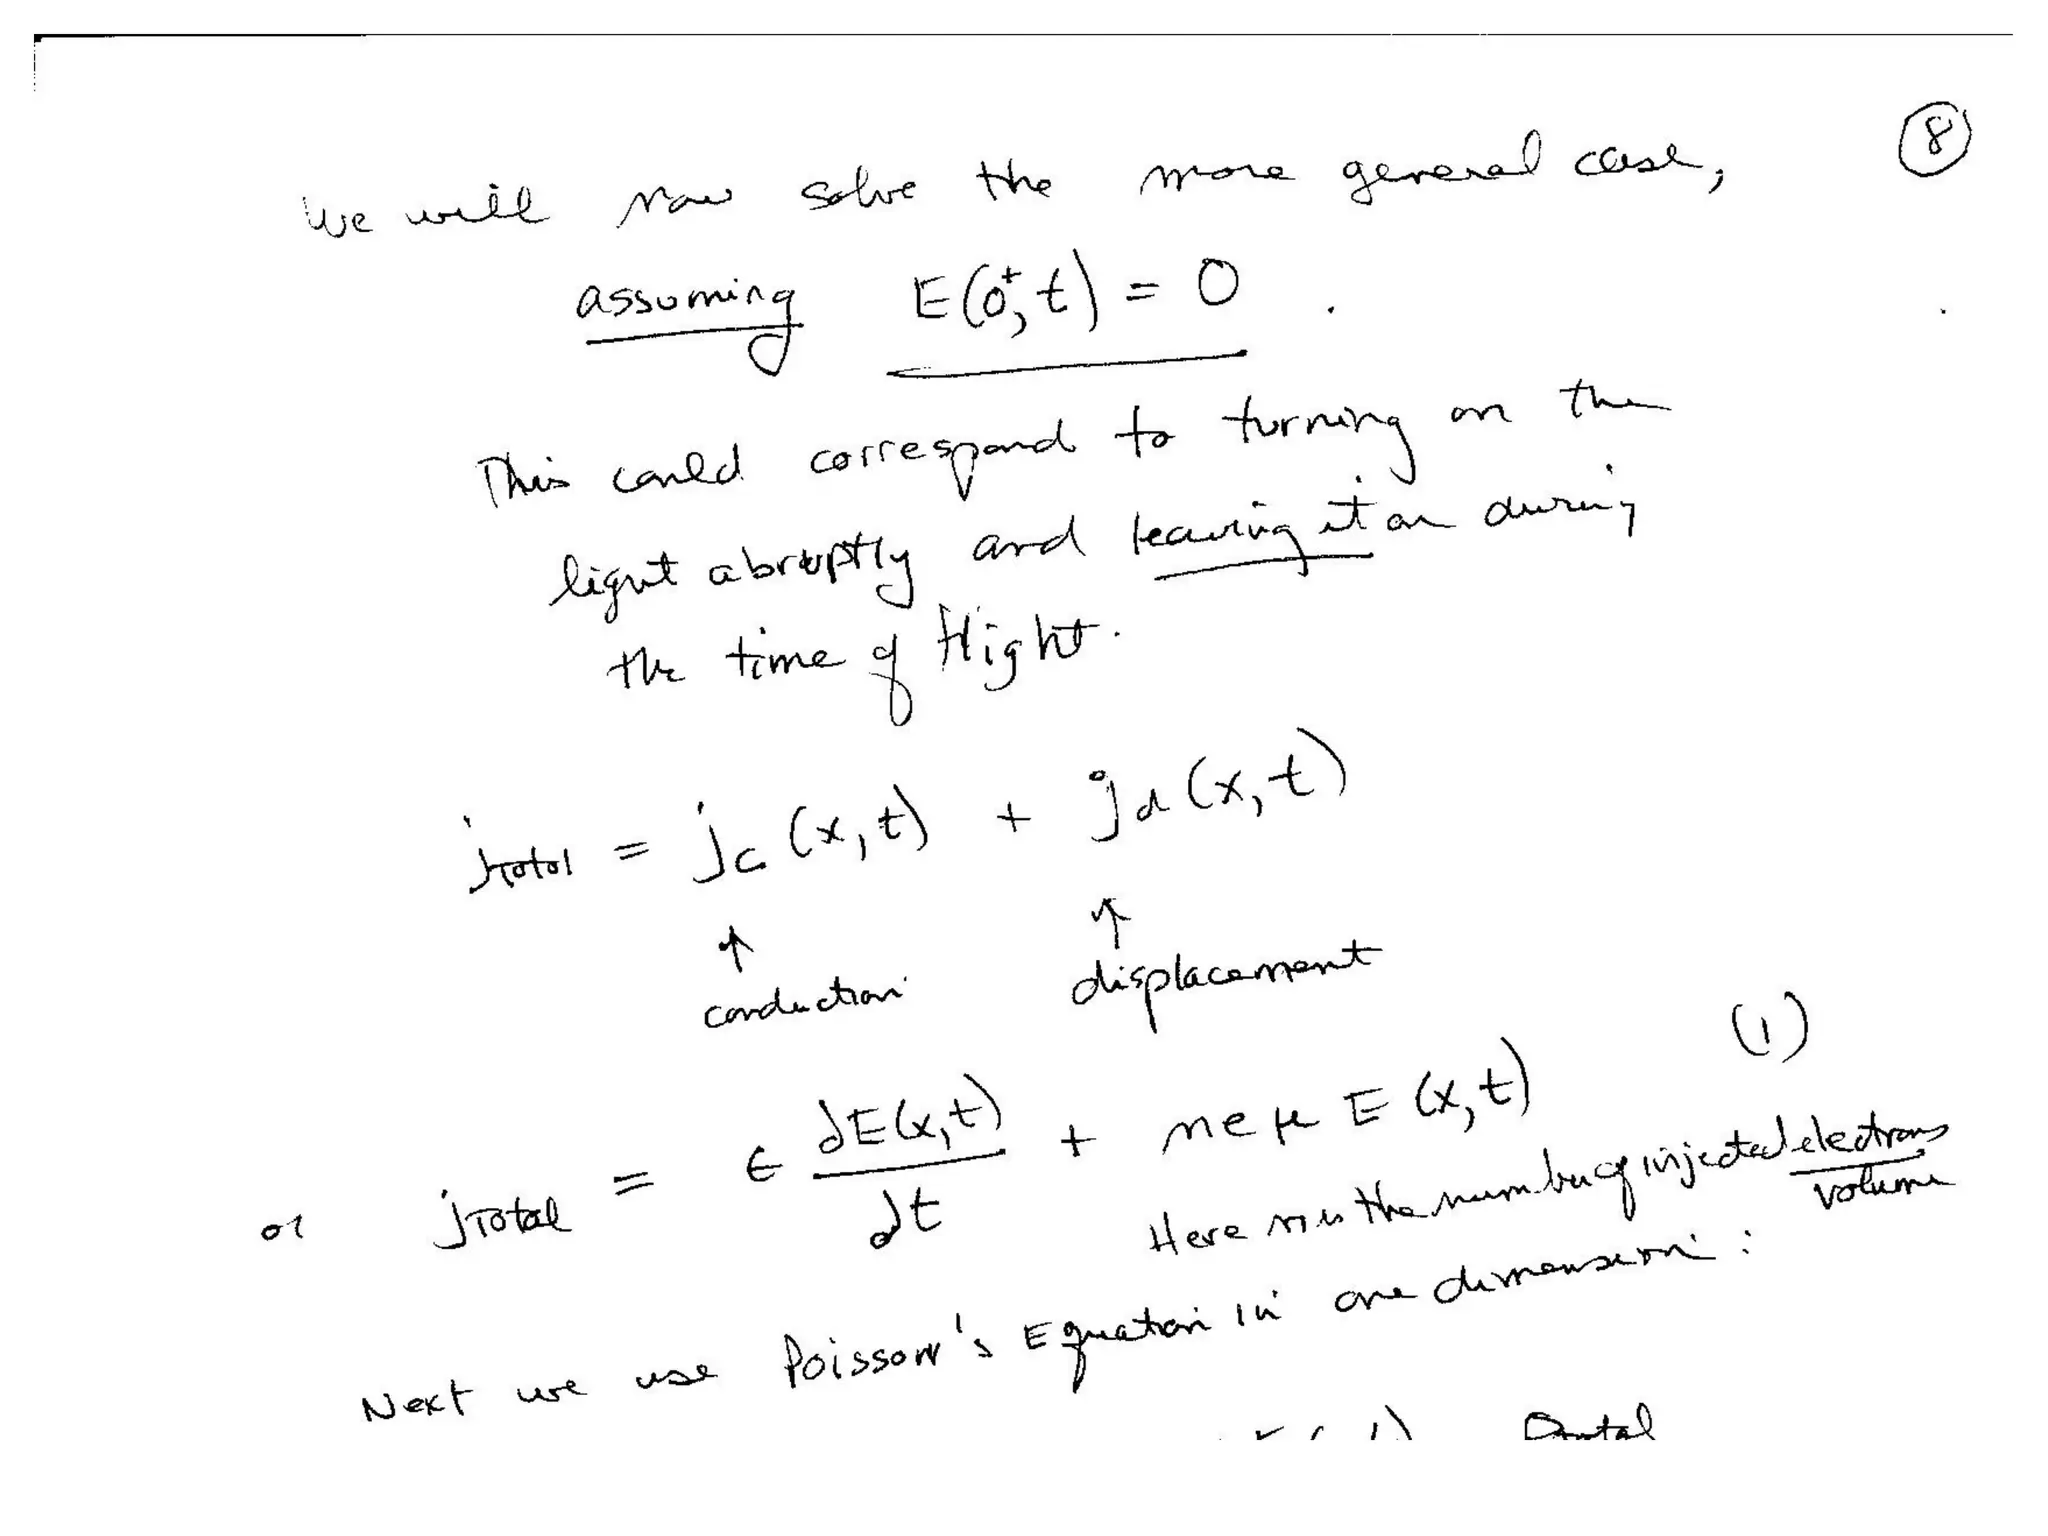 8
We will now solve the more general case,
assuming E(0⁺, t) = 0.
This could correspond to turning on the
light abruptly and leaving it on during
the time of flight.
jTotal = jc (x, t) + jd (x, t)
↑ ↑
conduction displacement
(1)
or jTotal = ϵ ∂E(x,t)/∂t + neμ E (x, t)
Here n is the number of injected electrons/volume
Next we use Poisson's Equation in one dimension: